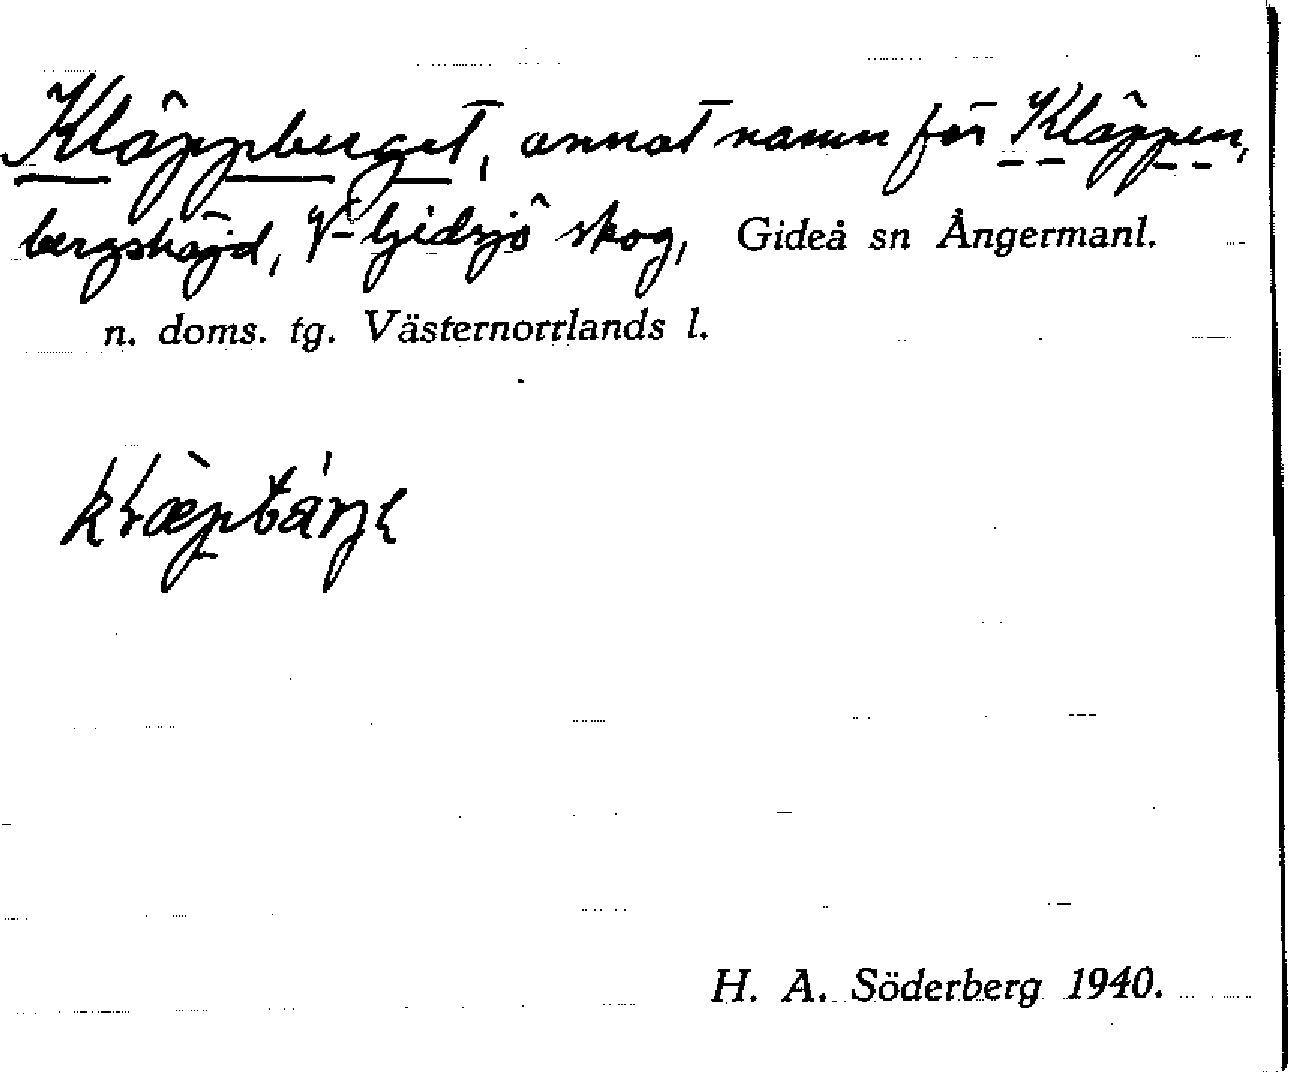 Kläppberget, annat namn för Kläppen,
bergshöjd, V. Gidsjö skog, Gideå sn Ångermanl.
n. doms. tg. Västernorrlands l.
H. A. Söderberg 1940.